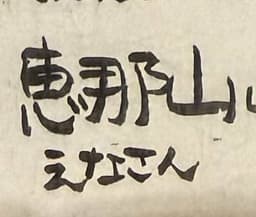 恵那山
えなさん